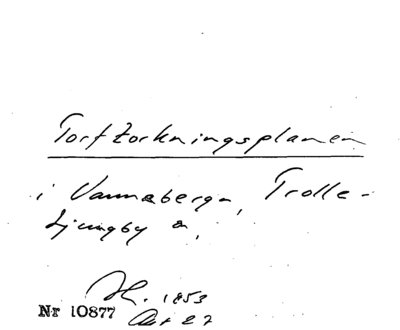 Torftorkningsplanen
i Vannaberga, Trolle-
Ljungby
1853
Nr 10877
27